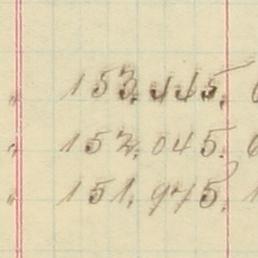 " 153.445. 6
" 152.045. 6
" 151.975. 1